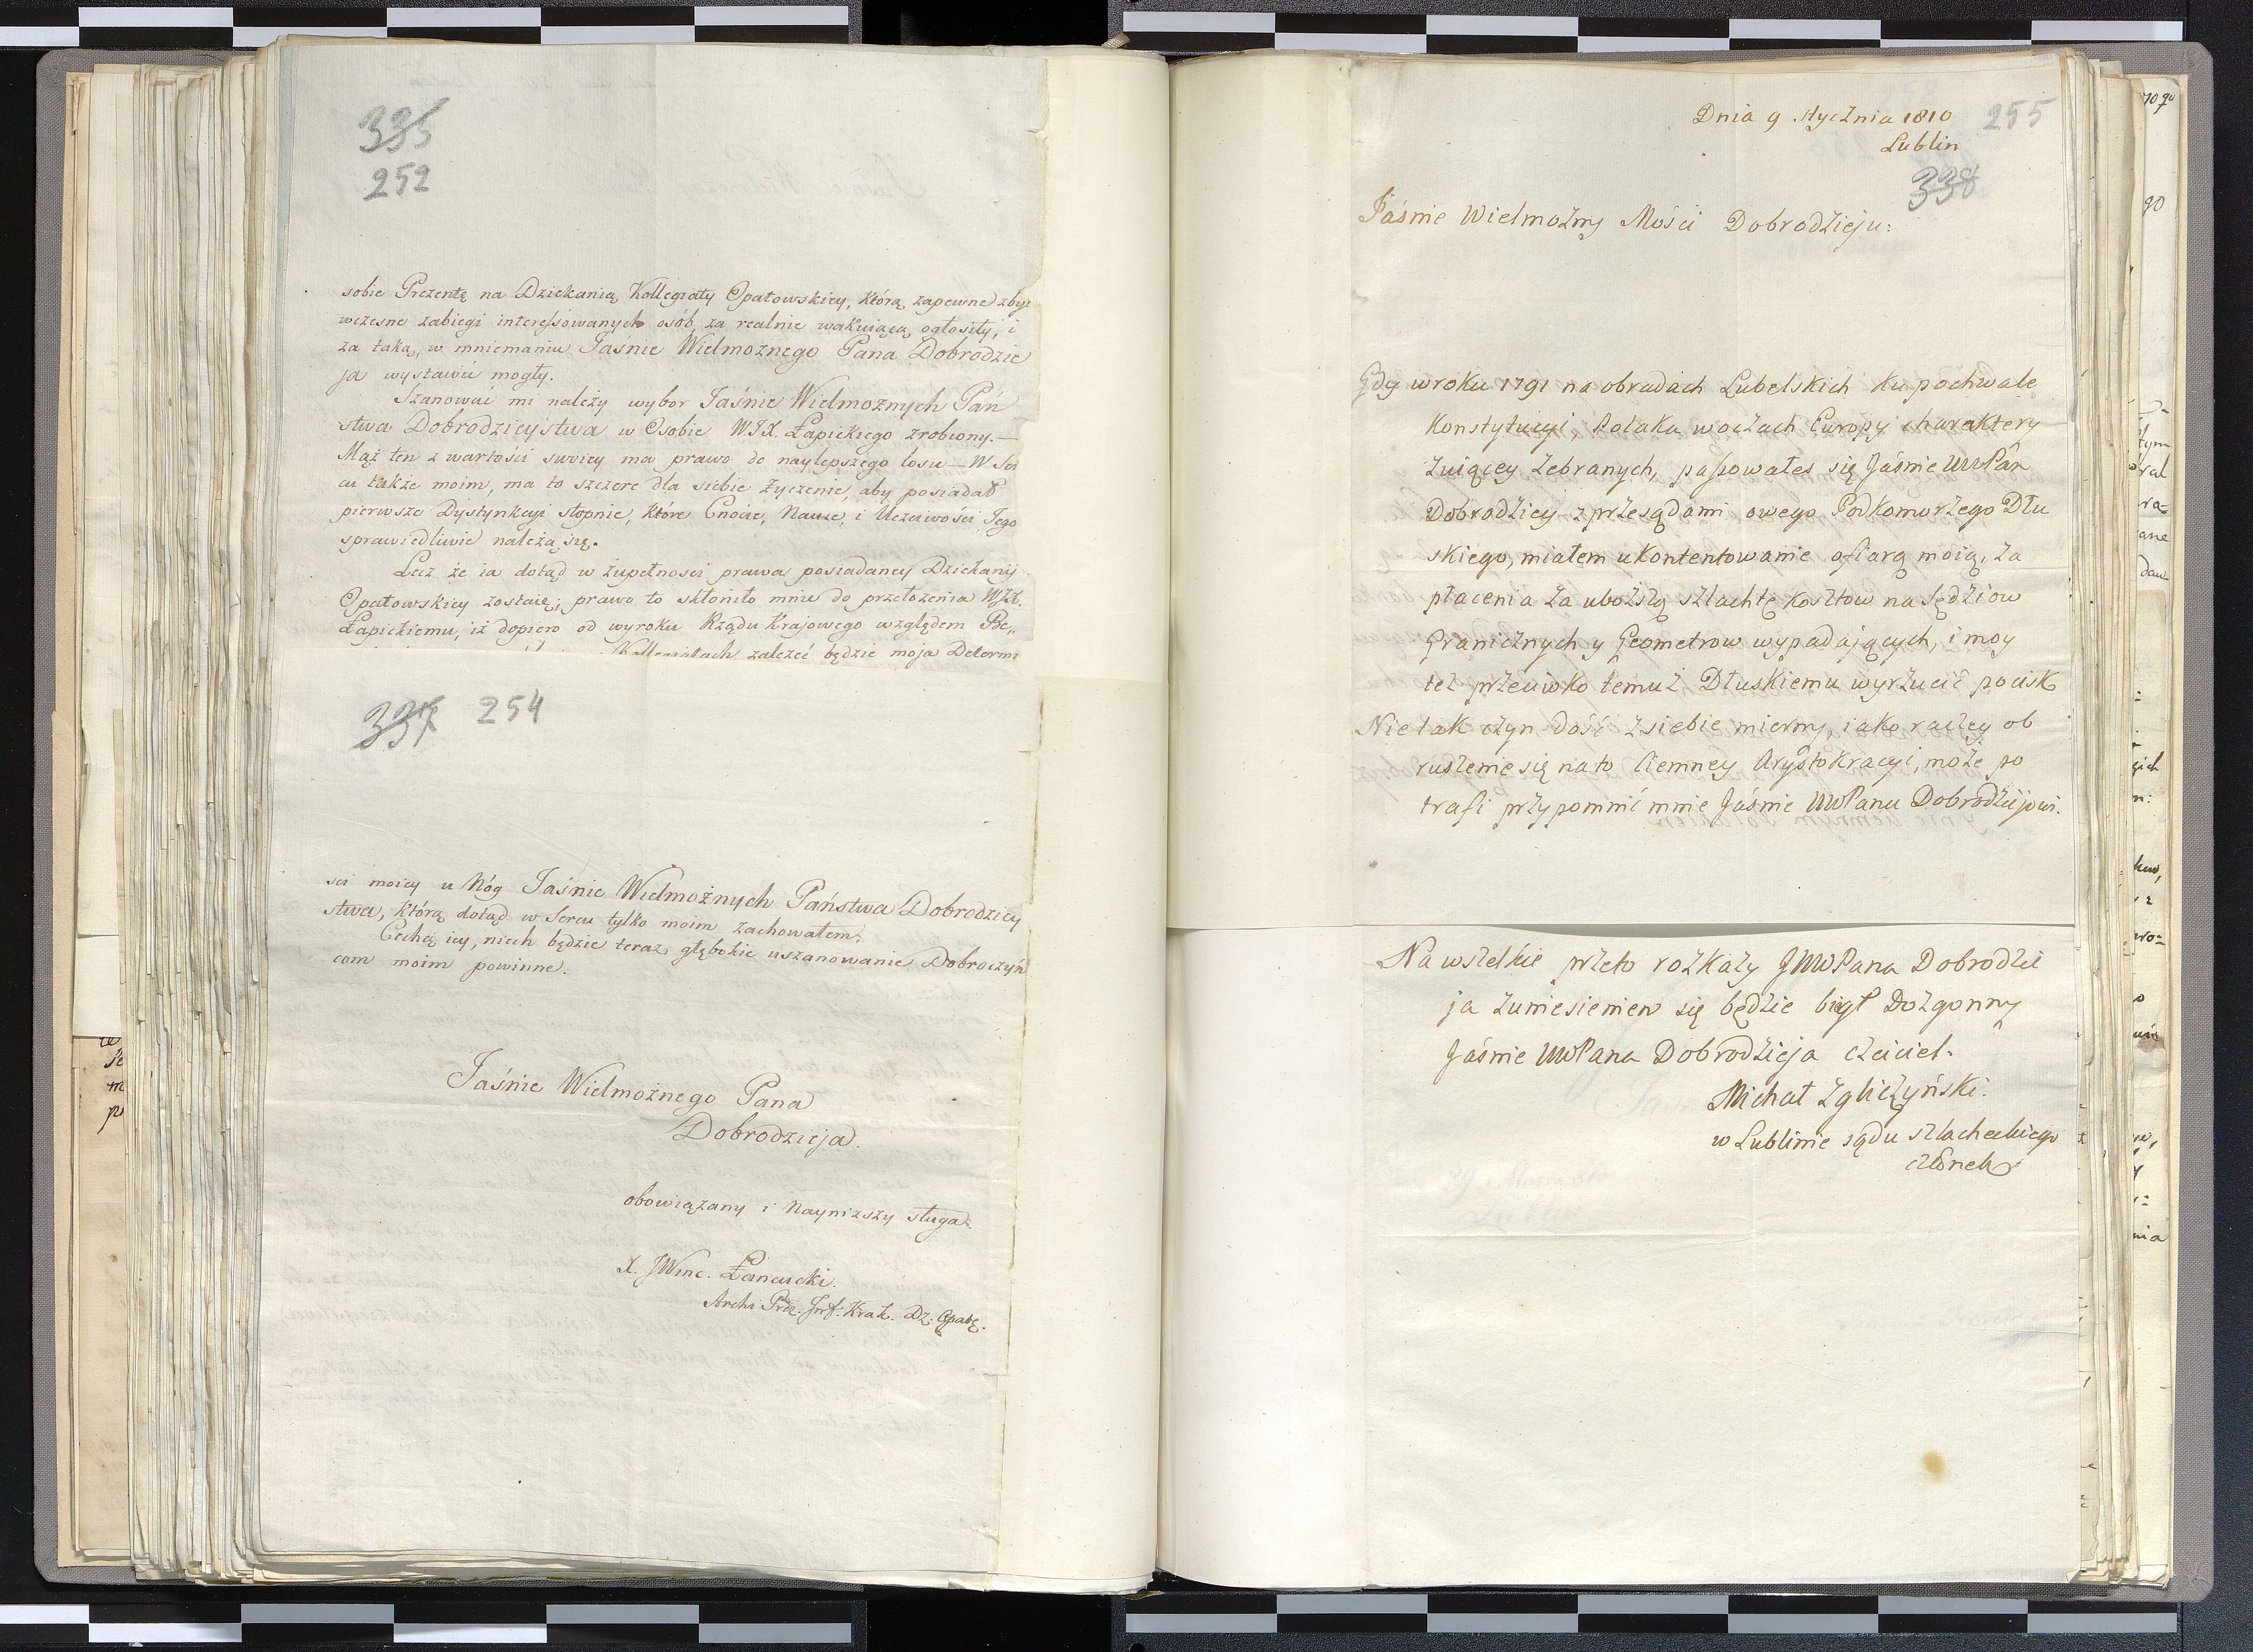 335
252
sobie Prezentę na Dziekanią Kollegiaty Opatowskiey, którą zapewne zbyt
wczesne zabiegi interessowanych osób, za realnie wakuiącą ogłosiły, i
za taką, w mniemaniu Jaśnie Wielmożnego Pana Dobrodzie
ja wystawić mogły.
Szanować mi należy wybor Jaśnie Wielmożnych Pań
stwa Dobrodzieystwa w Osobie W.J.X. Łapickiego zrobiony.—
Mąż ten z wartości swoiey ma prawo do naylepszego losu — W Ser
cu także moim, ma to szczere dla siebie życzenie, aby posiadał
pierwsze Dystynkcyi stopnie, które Cnocie, Nauce, i Uczciwości Jego
sprawiedliwie należą się.
Lecz że ia dotąd w zupełności prawa posiadaney Dziekanij
Opatowskiey zostaię; prawo to skłoniło mnie do przełożenia WJX.
Łapickiemu, iż dopiero od wyroku Rządu Krajowego względem Be„
Kollegiatach zależeć będzie moja Determi
337 254
sci moiey u Nóg Jaśnie Wielmożnych Państwa Dobrodziey
stwa, którą dotąd w Sercu tylko moim zachowałem.
Cechą iey, niech będzie teraz głębokie uszanowanie Dobroczyń
com moim powinne.
Jaśnie Wielmożnego Pana
Dobrodzieja.
obowiązany i Nayniższy sługa.
X. JWinc. Łańcucki.
Archi Prez. Inf: Krak. Dz. Opatę.
Dnia 9 Stycznia 1810 255
Lublin
338
Jaśnie Wielmożny Mości Dobrodzieju:
Gdy w roku 1791 na obradach Lubelskich ku pochwale
Konstytucyi, Polaka w oczach Europy charaktery
zuiącey zebranych, passowałeś się Jaśnie WWPan
Dobrodziey z przesądami owego Podkomorzego Dłu
skiego, miałem ukontentowanie ofiarą moią, za
płacenia za uboższą szlachtę kosztow na sędziow
Granicznych y Geometrow wypadających, i moy
też przeciwko temuż Dłuskiemu wyrzucić pocisk
Nie tak czyn dość z siebie mierny, iako raczey ob
ruszenie się na to Ciemney Arystokracyi, może po
trafi przypomnić mnie Jaśnie WWPanu Dobrodziejowi.
Na wszelkie przeto rozkazy JWWPana Dobrodzie
ja z uniesieniem się będzie biegł Dozgonny
Jaśnie WWPana Dobrodzieja czciciel.
Michał Zgliczyński.
w Lublinie sądu szlacheckiego
członek